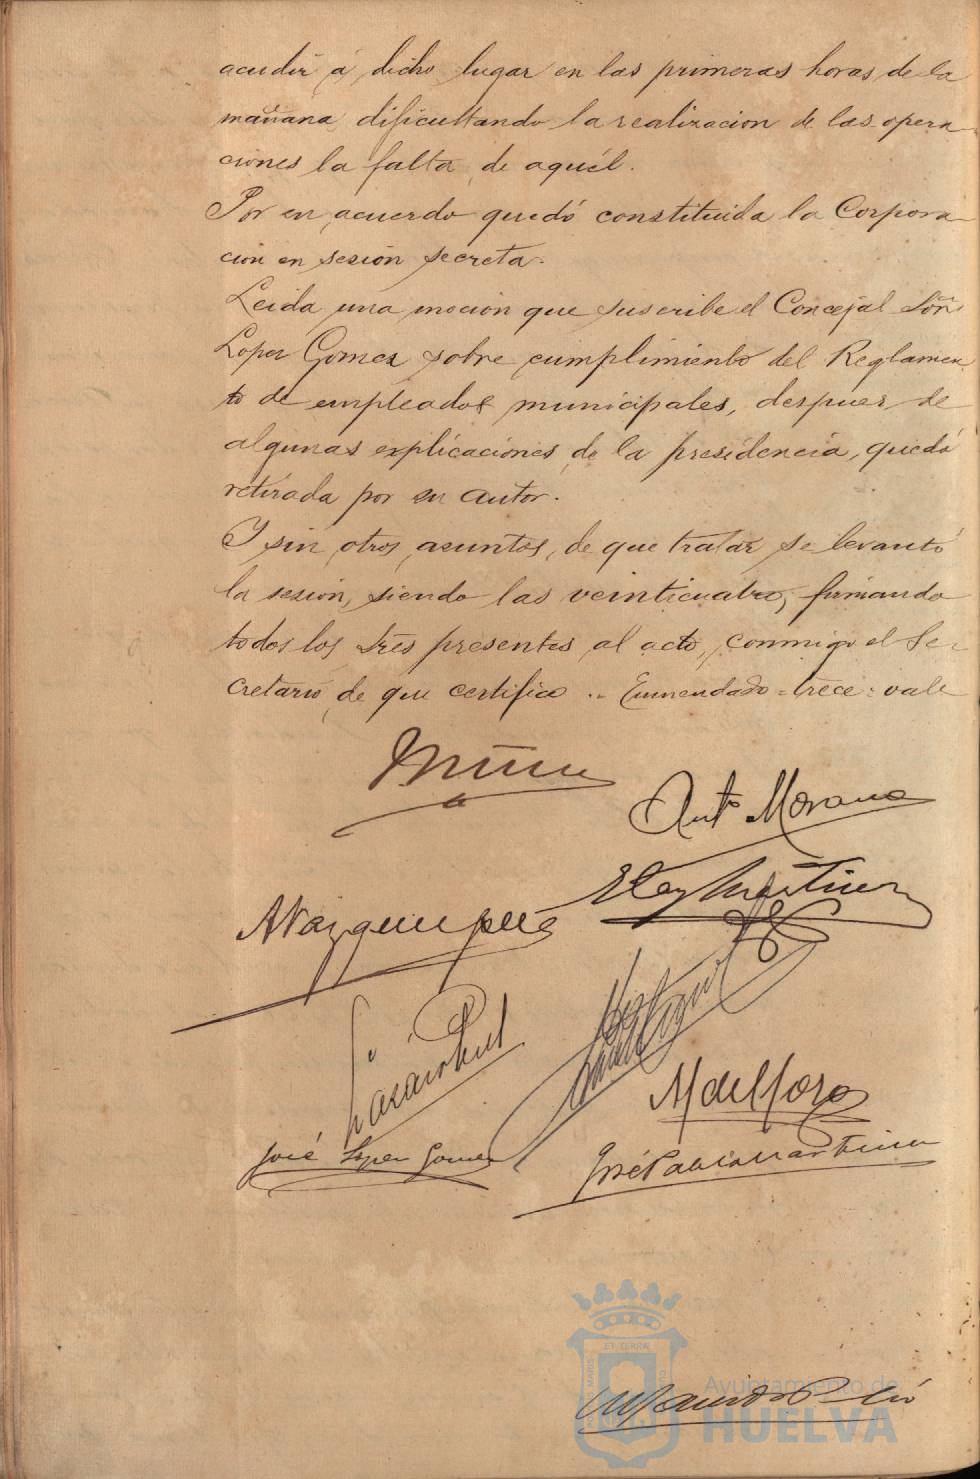 acudir á dicho lugar en las primeras horas de la
mañana, dificultando la realizacion de las opera-
ciones la falta de aquél.
Por en acuerdo quedó constituida la Corpora-
cion en sesión secreta.
Leida una mocion que suscribe el Concejal Señr
Lopez Gomez sobre cumplimiento del Reglamen
to de empleados municipales, despues de
algunas explicaciones de la presidencia, quedó
retirada por su autor.
Y sin otros asuntos, de que tratar se levantó
la sesion, siendo las veinticuatro, firmando
todos los Sres presentes al acto, conmigo el Se-
cretario de que certifico .. Enmendado = trece = vale
Antº Morano
A Vazquez
Eloy Martinez
M del Hoyo
José Lopez Gomez
José Pablo Martinez
Ayuntamiento de
HUELVA